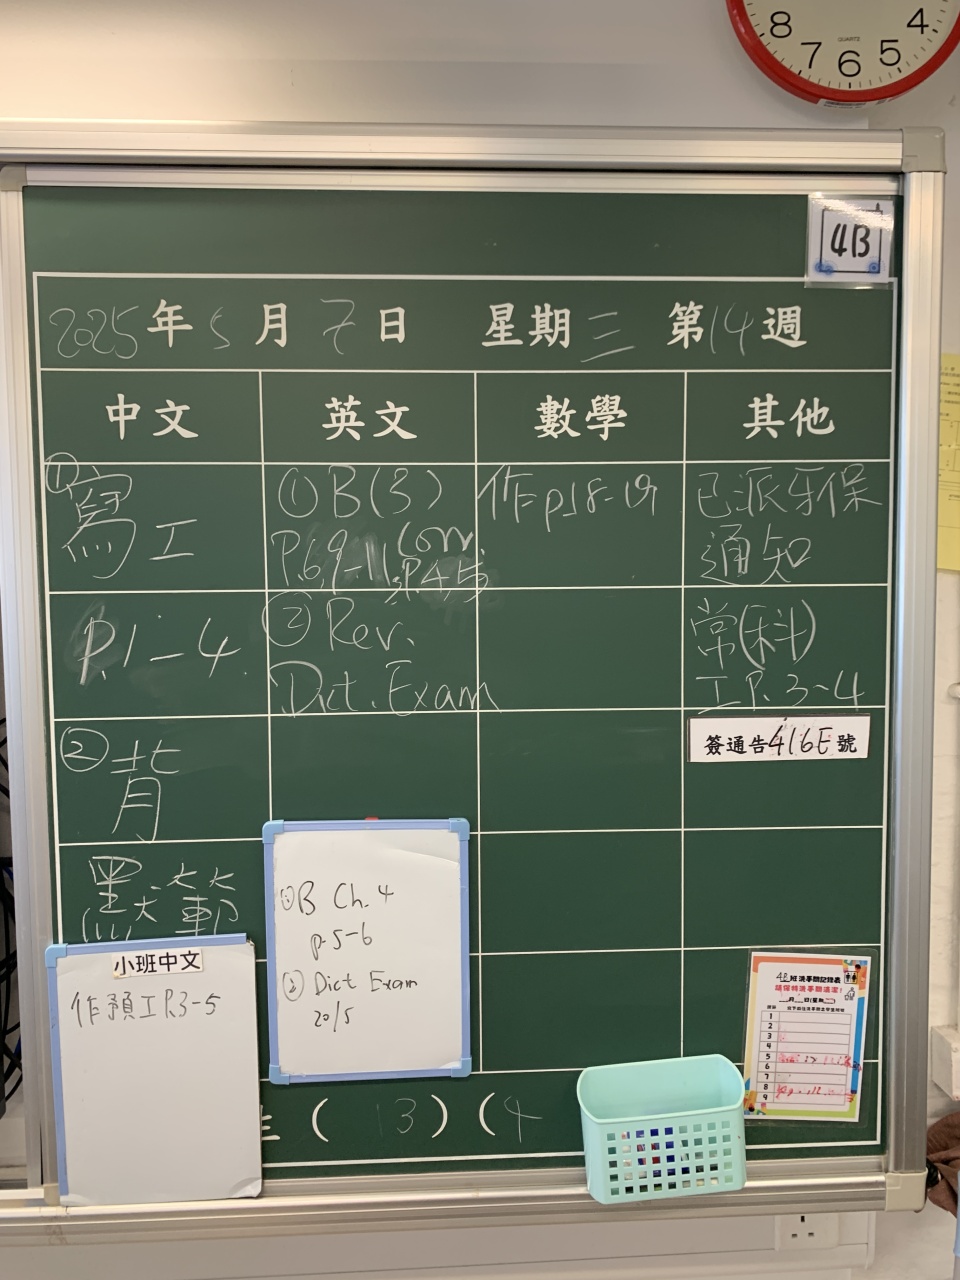 8 7 6 5 4
QUARTZ
4B
2025年5月7日 星期三 第14週
中文 英文 數學 其他
①寫工
P.1-4
②背
默
① B(3)
P.6,9-11, Corr. P.4,5
② Rev.
Dict. Exam
作 p.18-19
已派牙保
通知
常(科)
工 P.3-4
簽通告416E號
小班中文
作預工 P.3-5
① B Ch.4
p.5-6
② Dict Exam
20/5
(13) (4
4B班洗手間記錄表
請保持洗手間清潔!
1
2
3
4
5
6
7
8
9